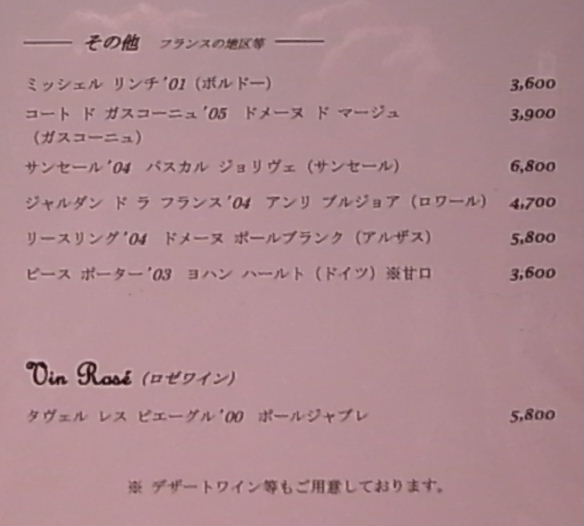 その他 フランスの地区等
ミッシェル リンチ'01 (ボルドー) 3,600
コート ド ガスコーニュ'05 ドメーヌ ド マージュ 3,900
(ガスコーニュ)
サンセール'04 パスカル ジョリヴェ (サンセール) 6,800
ジャルダン ド ラ フランス'04 アンリ ブルジョア (ロワール) 4,700
リースリング'04 ドメーヌ ポールブランク (アルザス) 5,800
ピース ポーター'03 ヨハン ハールト (ドイツ) ※甘口 3,600
Vin Rosé (ロゼワイン)
タヴェル レス ピエーグル'00 ポールジャブレ 5,800
※ デザートワイン等もご用意しております。